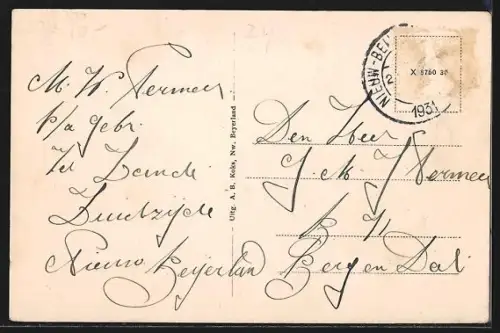 M. W. Vermeer
p/a Gebr.
Zuidzijde
Nieuw Beijerland
Uitg. A. B. Koks, Nw. Beyerland
NIEUW-BEI
1931
X 8760 39
Den Heer
J. Vermeer
Berg en Dal